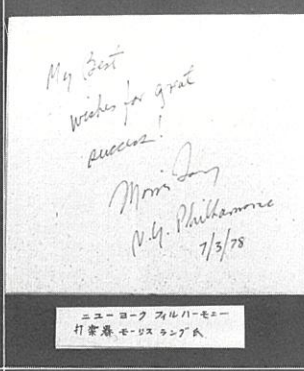 My Best
wishes for great
success!
Morris Lang
N.Y. Philharmonic
7/3/78
ニューヨーク フィルハーモニー
打楽器 モーリス ラング氏